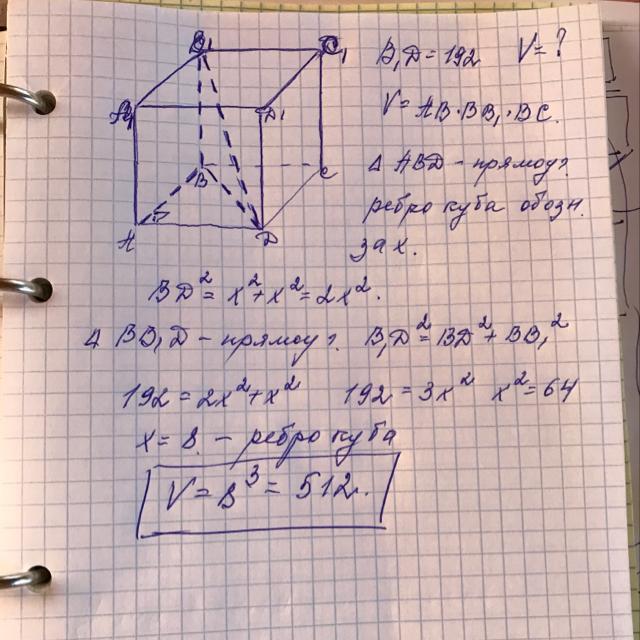 B₁ C₁
A₁ D₁
B C
A D
B₁D=192 V=?
V=AB·BB₁·BC.
Δ ABD - прямоуг.
ребро куба обозн.
за х.
BD²=x²+x²=2x².
Δ BB₁D - прямоуг. B₁D²=BD²+BB₁²
192=2x²+x² 192=3x² x²=64
x=8 - ребро куба
V=8³=512.